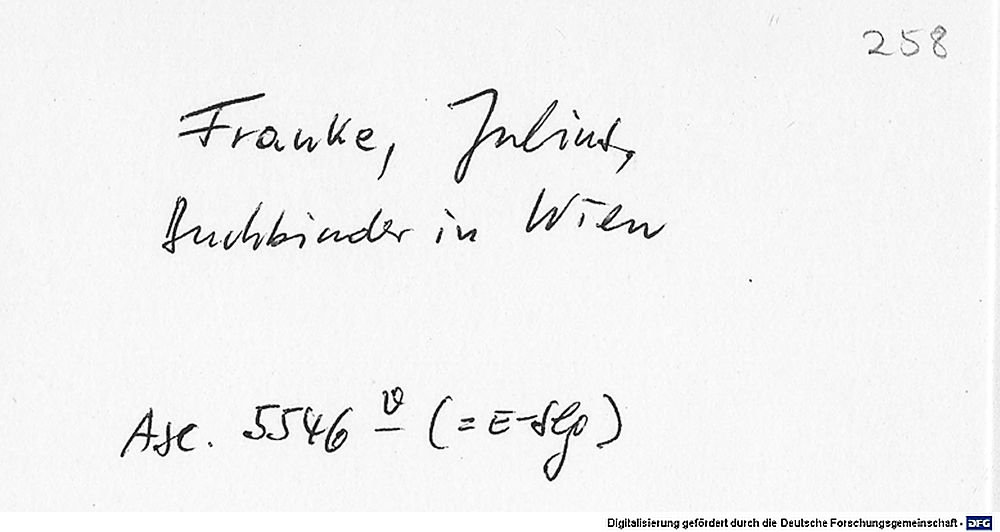 258
Franke, Julius,
Buchbinder in Wien
Ase. 5546 ϑ (= E-Slg)
Digitalisierung gefördert durch die Deutsche Forschungsgemeinschaft - DFG